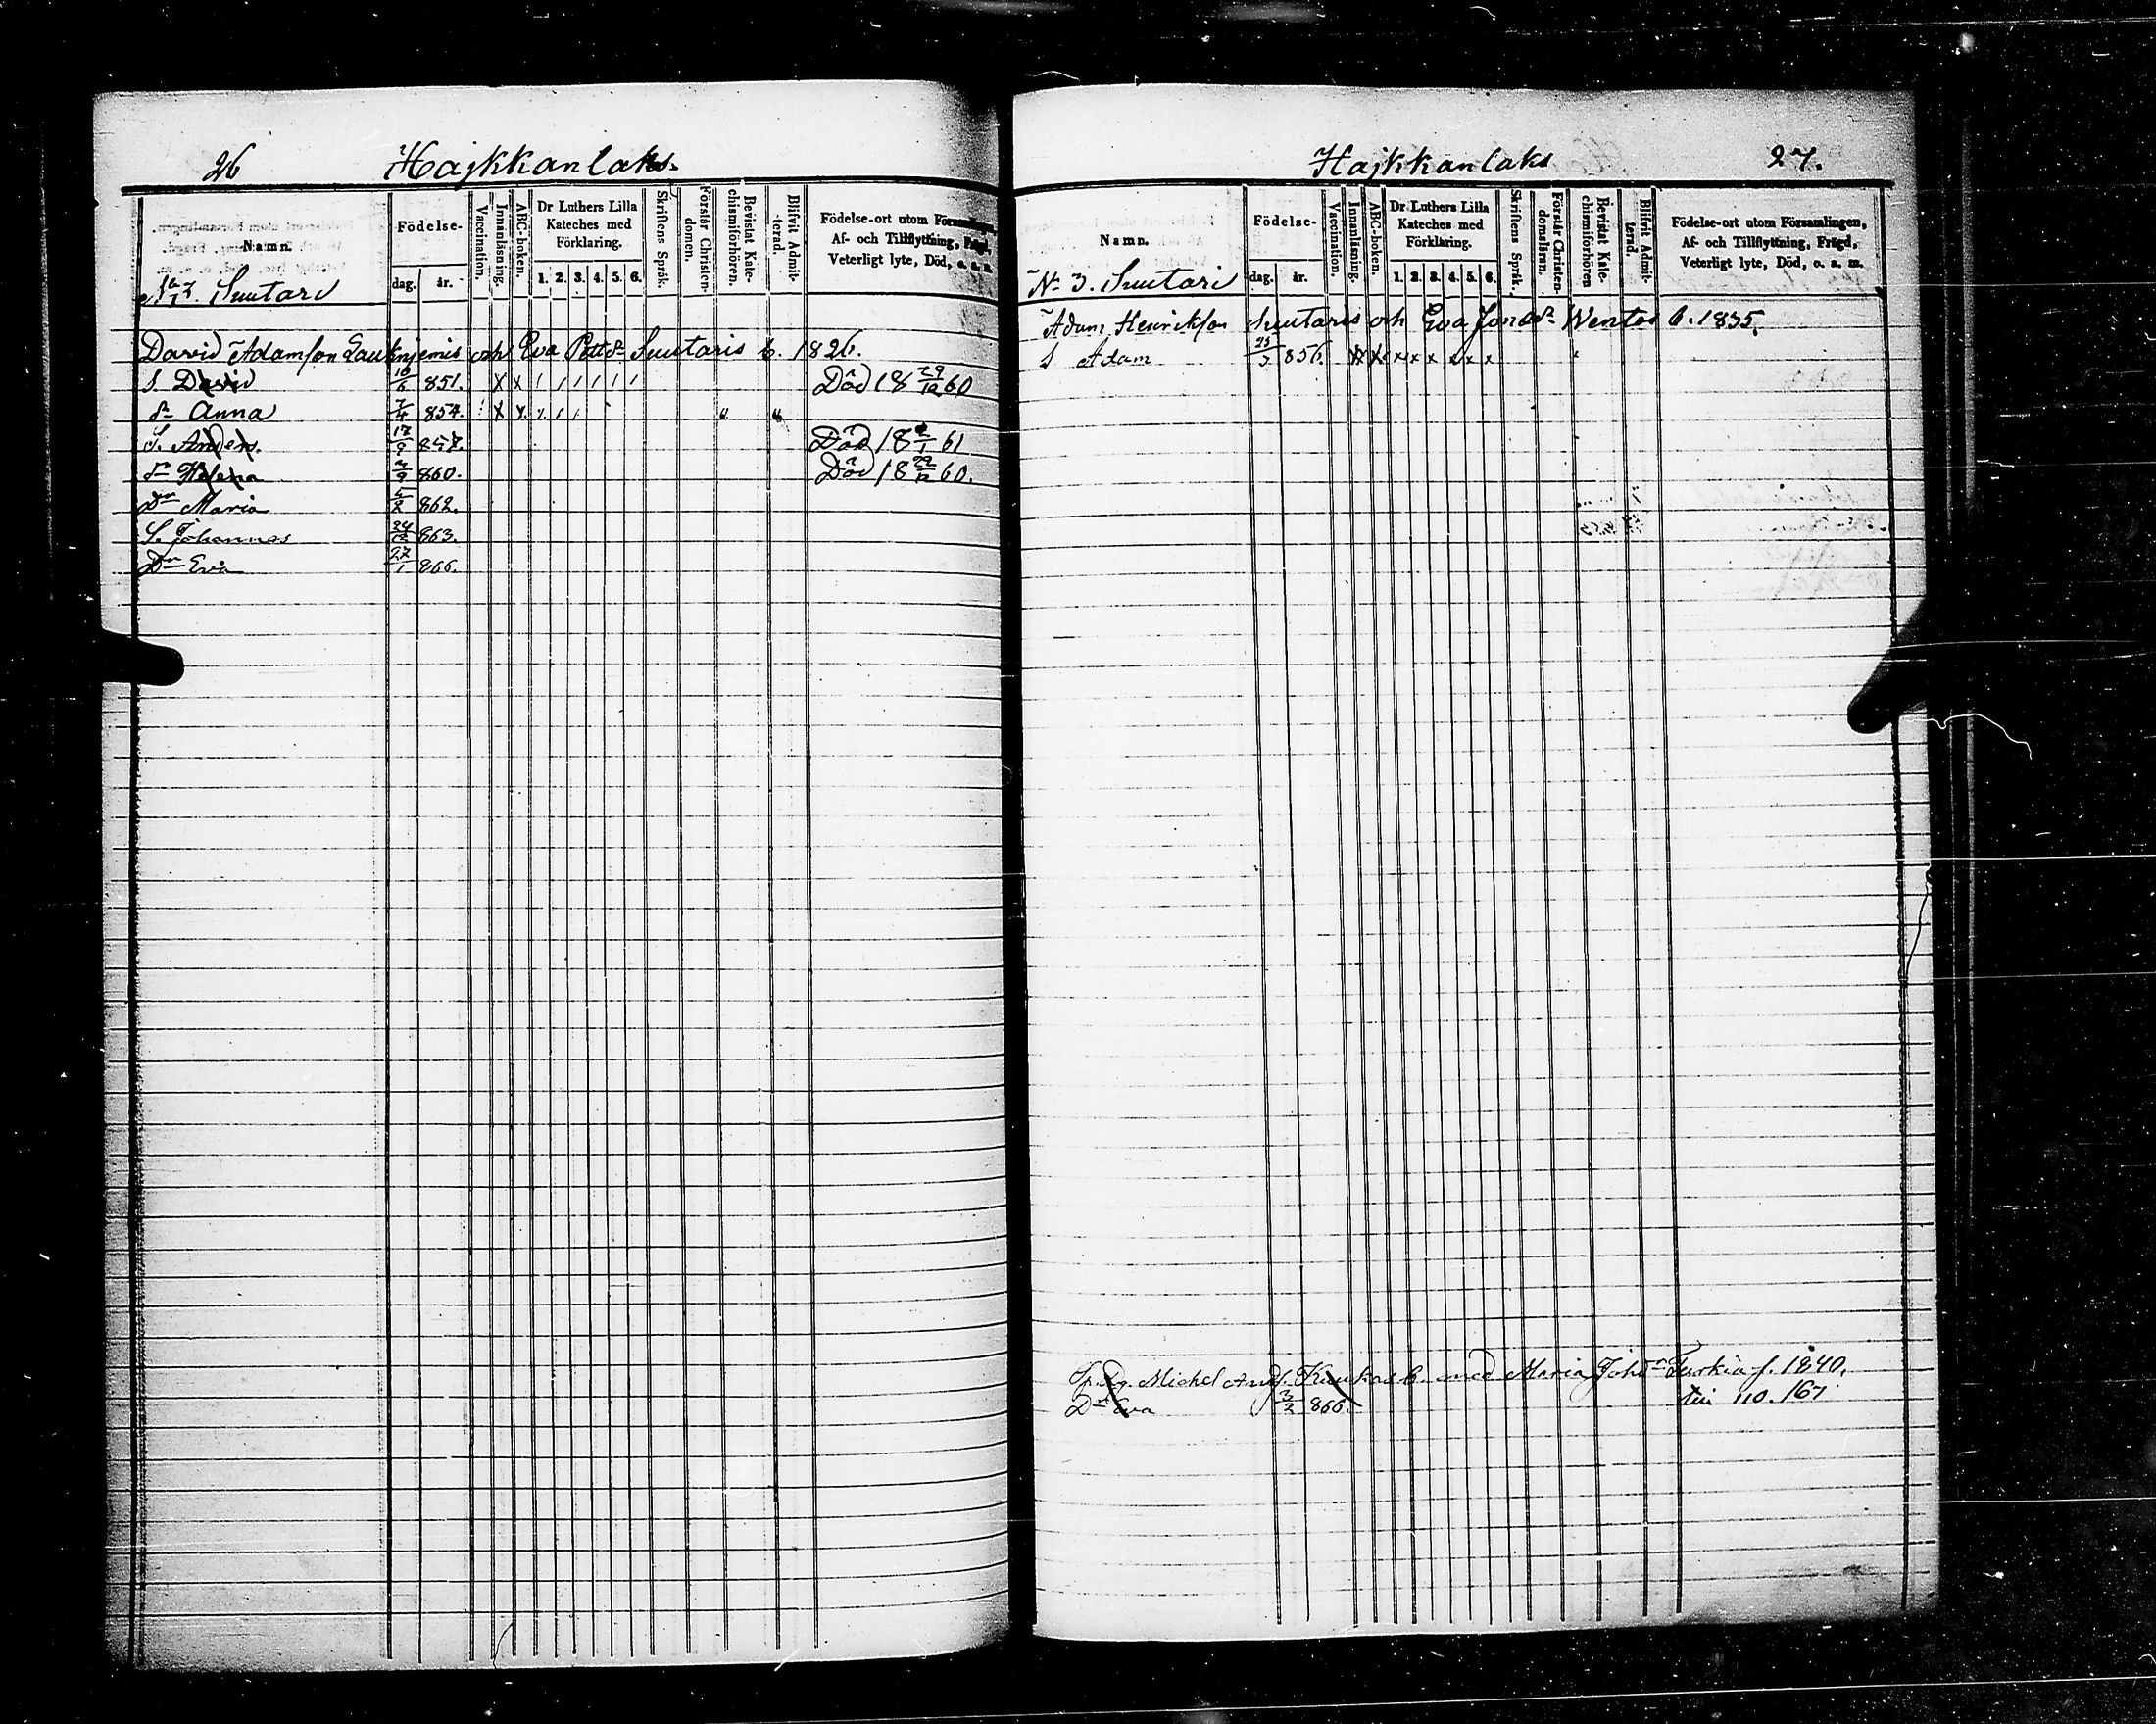 26 Hajkkanlaks.
Namn.
Födelse-
dag. år.
Vaccination.
Innanläsning.
ABC-boken.
Dr Luthers Lilla Kateches med Förklaring.
1. 2. 3. 4. 5. 6.
Skriftens Språk.
Förstår Christen-domen.
Bevistat Kate-chismiförhören.
Blifvit Admit-terad.
Födelse-ort utom Församlingen,
Af- och Tillflyttning, Frigd,
Veterligt lyte, Död, o. s. m.
Suutari
David Adamsson Lauknjemis och Eva Pettdr Suutaris b. 1826.
S. David 16/6 851. Död 18 29/12 60
dr Anna 7/4 854.
S. Anders. 17/9 857. Död 18 /1 61
dr Helena /9 860. Död 18 60.
Dr Maria /2 862.
S. Johannes 24/12 863.
Dr Eva 27/1 866.
Hajkkanlaks 27.
Namn.
Födelse-
dag. år.
Vaccination.
Innanläsning.
ABC-boken.
Dr Luthers Lilla Kateches med Förklaring.
1. 2. 3. 4. 5. 6.
Skriftens Språk.
Förstår Christen-domsläran.
Bevistat Kate-chismiförhören
Blifvit Admit-terad.
Födelse-ort utom Församlingen,
Af- och Tillflyttning, Frigd,
Veterligt lyte, Död, o. s. m.
No 3. Suutari
Adam Henriksson Suutaris och Eva Jonasdr Wentos b. 1835.
S Adam 25/3 856.
Michel And. b. med Maria Johdr f. 1840.
Dr Eva 3/2 866. 110. 167.